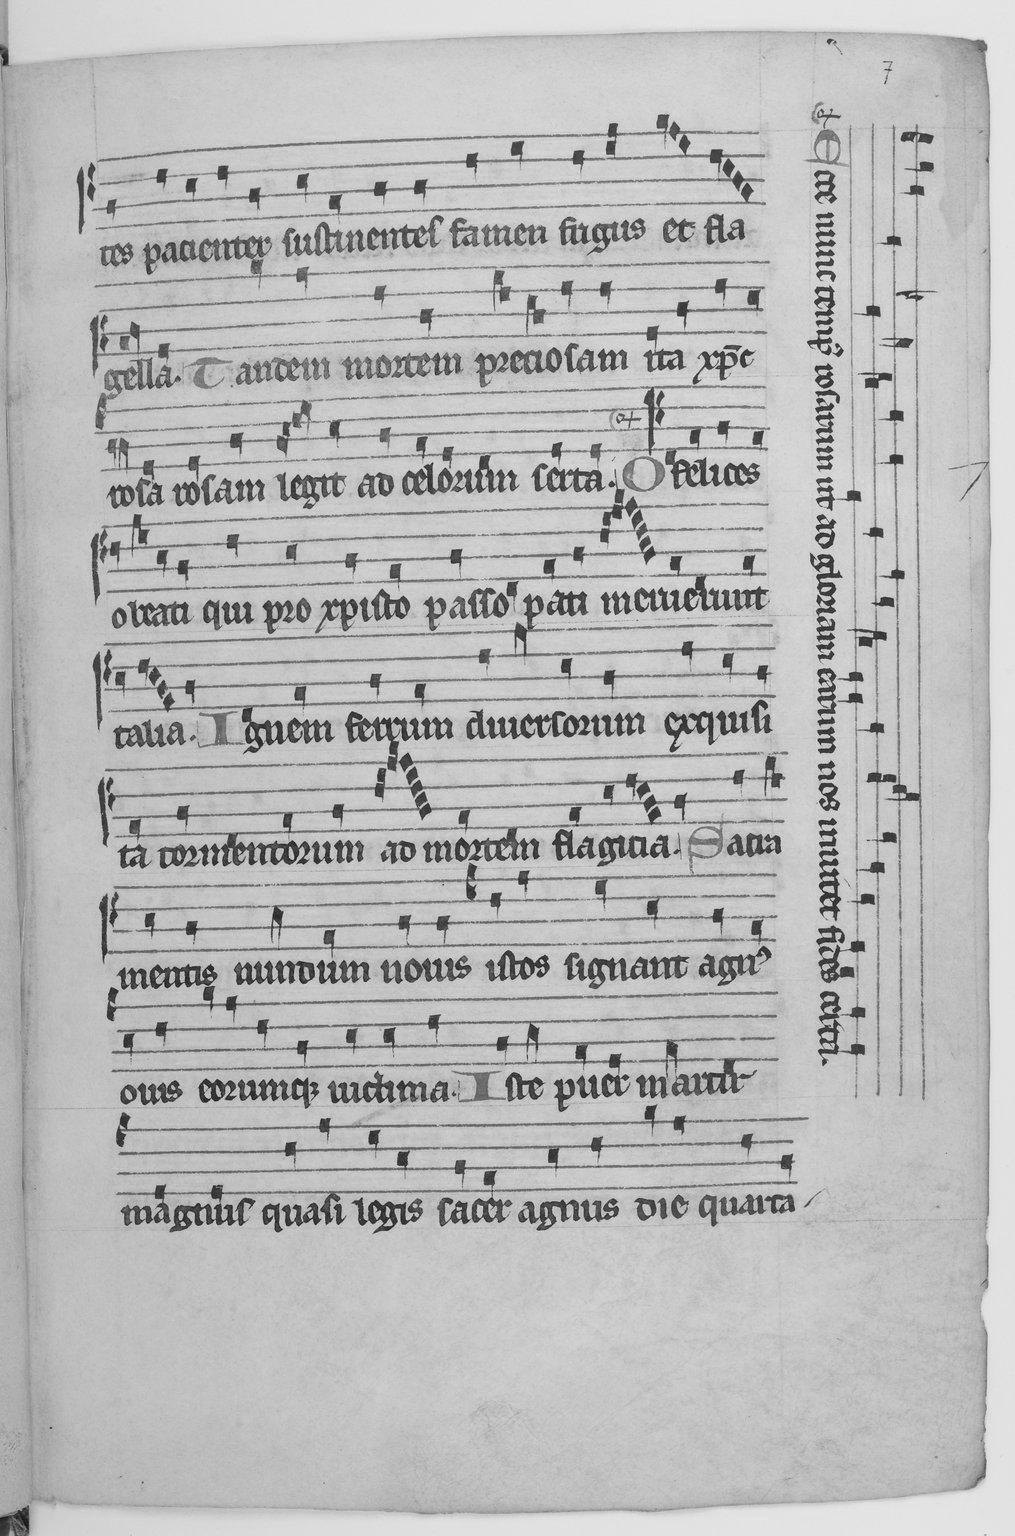 7
tes pacienter sustinentes famen frigus et fla
gella. Tandem mortem preciosam ita xp̄c
rosa rosam legit ad celorum serta. O felices
o beati qui pro xpisto passo pati meruerunt
talia. Ignem ferrum diuersorum exquisi
ta tormentorum ad mortem flagicia. Sacra
mentis mundum nouis istos signant agnꝰ
ouis eorumqꝫ uictima. Iste puer martir
magnus quasi legis sacer agnus die quarta
Ecce nunc tempꝰ rosarum ut ad gloriam earum nos inuitet fides certa.